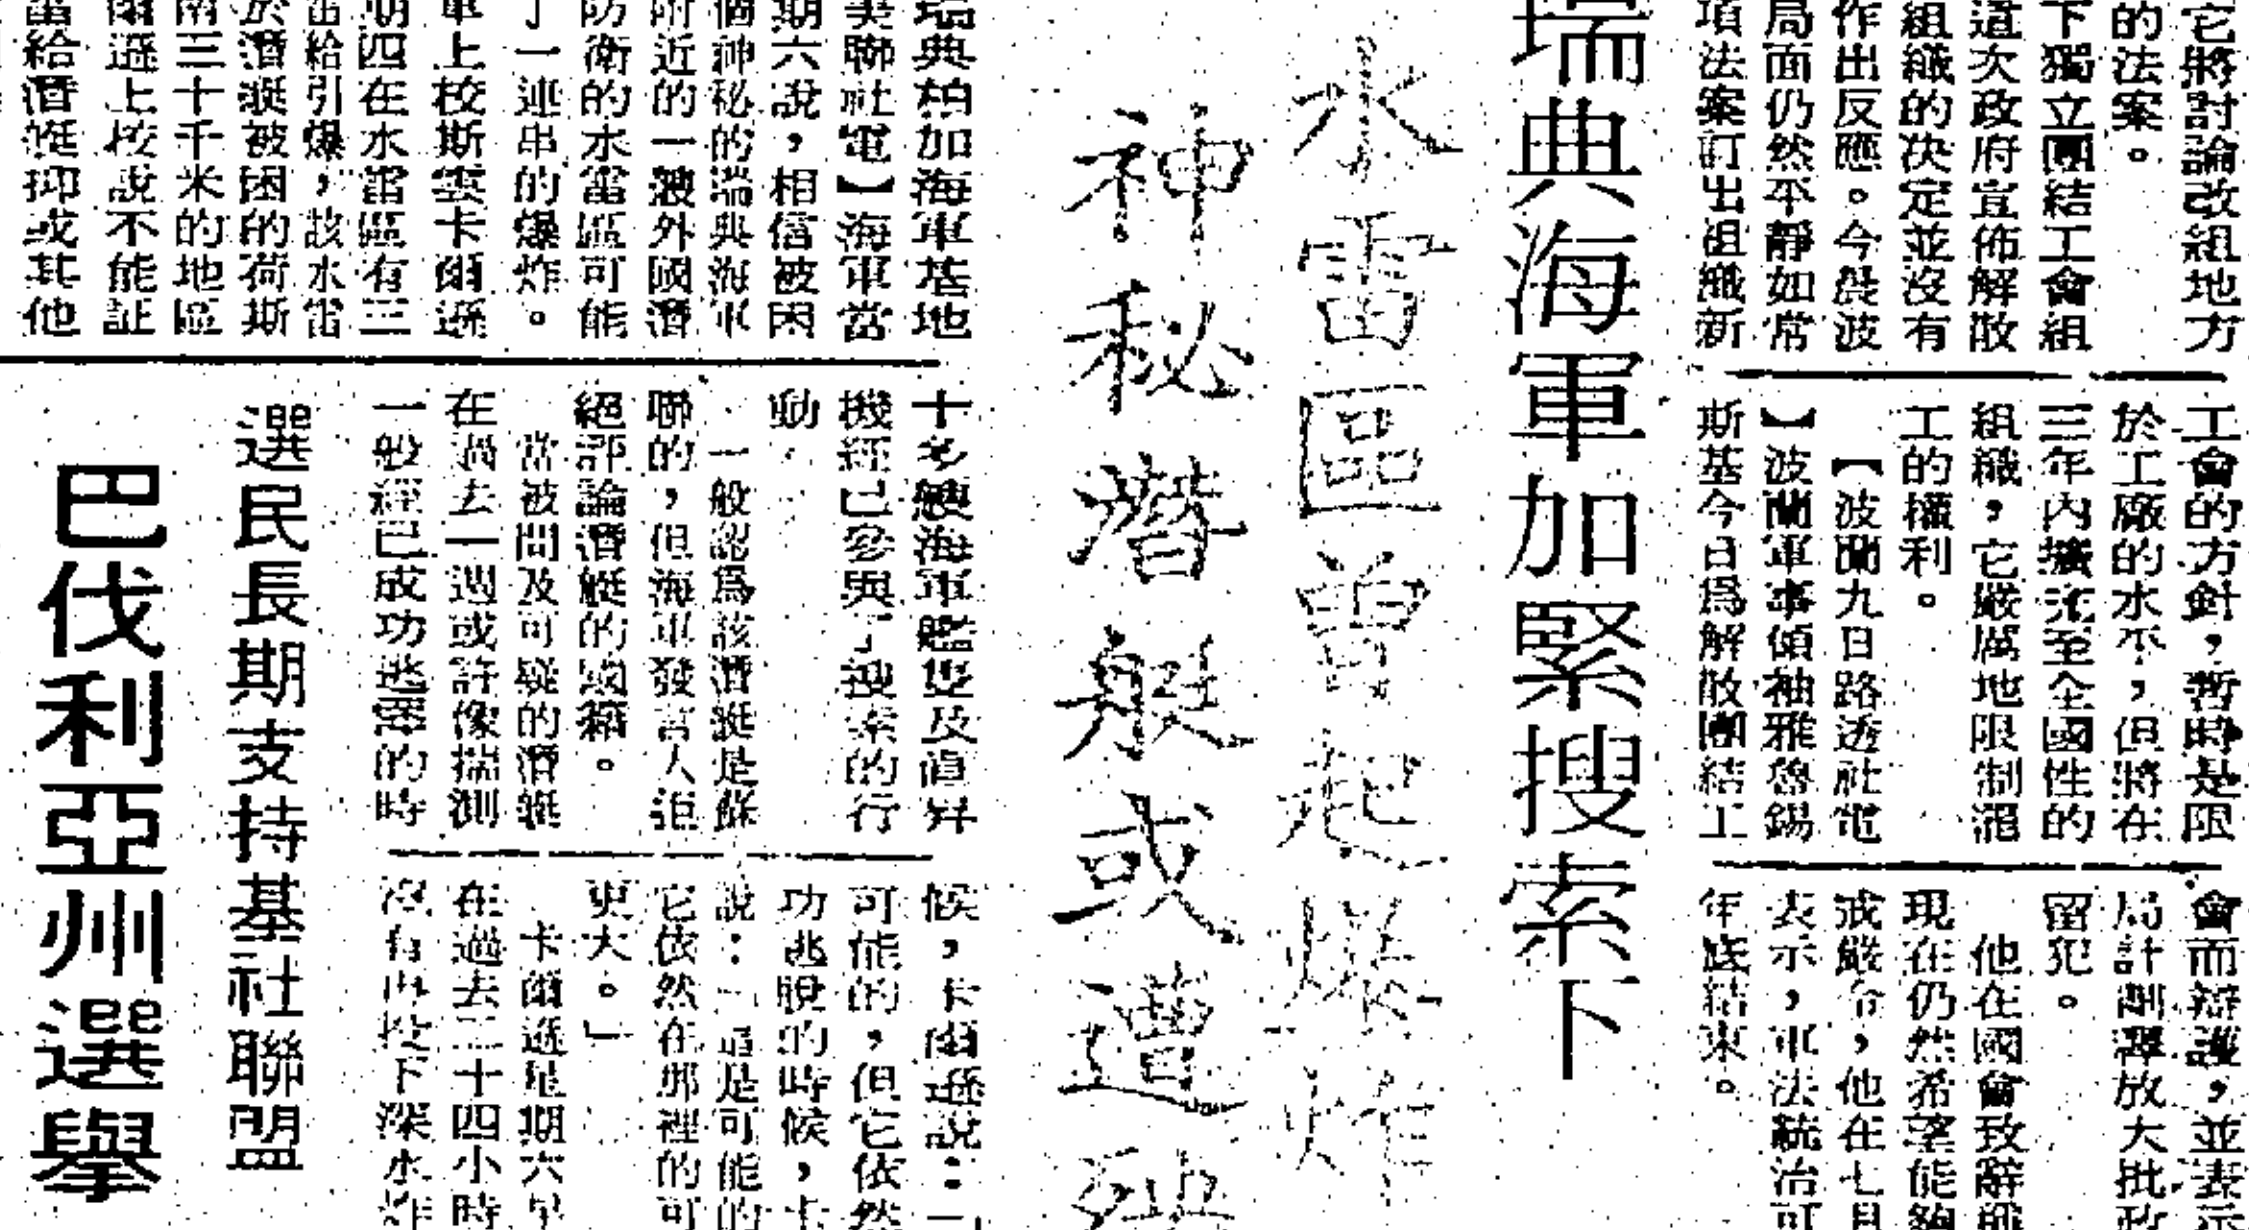 它將討論改組地方
的法案。
下獨立團結工會組
道次政府宣佈解散
組織的决定並沒有
作出反應。今晨波
局面仍然平靜如常
項法案訂出組織新
工會的方針，暫時是限
於工廠的水平，但將在
三年內擴充至全國性的
組織，它嚴厲地限制罷
工的權利。
【波蘭九日路透社電
】波蘭軍事領袖雅魯錫
斯基今日爲解散團結工
會而辯護，並表示
局計劃釋放大批政
留犯。
他在國會致辭
現在仍然希望能夠
戒嚴令，他在七月
表示，軍法統治可
年底結束。
瑞典海軍加緊搜索下
水雷區曾起爆炸
神秘潛艇或遭
瑞典柏加海軍基地
美聯社電】海軍當
期六說，相信被困
個神秘的瑞典海軍
附近的一艘外國潛
防衛的水雷區可能
了一連串的爆炸。
軍上校斯雲卡爾遜
期四在水雷區有三
雷給引爆，該水雷
於潛艇被困的荷斯
南三十千米的地區
爾遜上校說不能証
雷給潛艇抑或其他
十多艘海軍艦隻及直昇
機經已參與了搜索的行
動
一般認爲該潛艇是蘇
聯的，但海軍發言人拒
絕評論潛艇的國籍。
當被問及可疑的潛艇
在過去一週或許像揣測
一般經已成功逃竄的時
候，卡爾遜說：「
可能的，但它依然
功逃脫的時候，卡
說：「這是可能的
它依然在那裡的可
更大。」
卡爾遜是期六早
在過去二十四小時
沒有再投下深水炸
選民長期支持基社聯盟
巴伐利亞州選舉